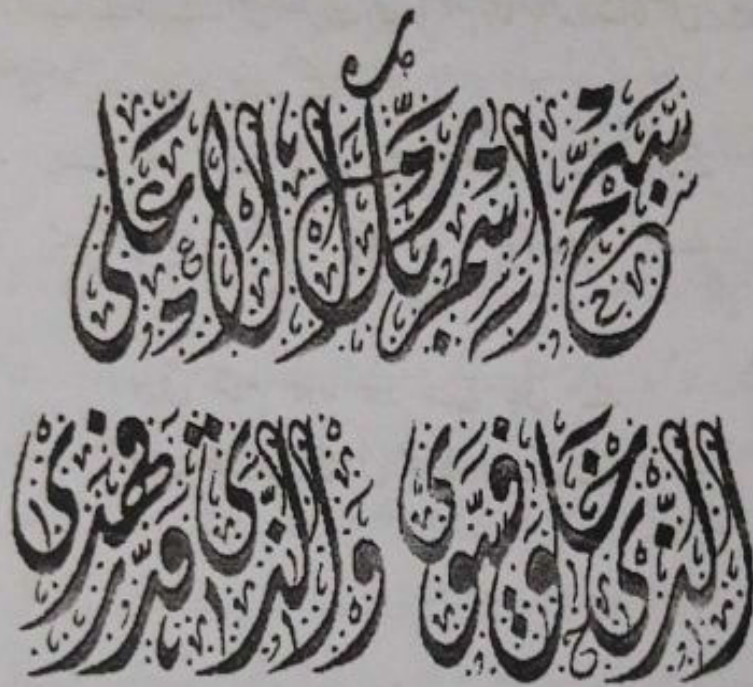 سبح اسم ربك الأعلى
الذي خلق فسوى والذي قدر فهدى